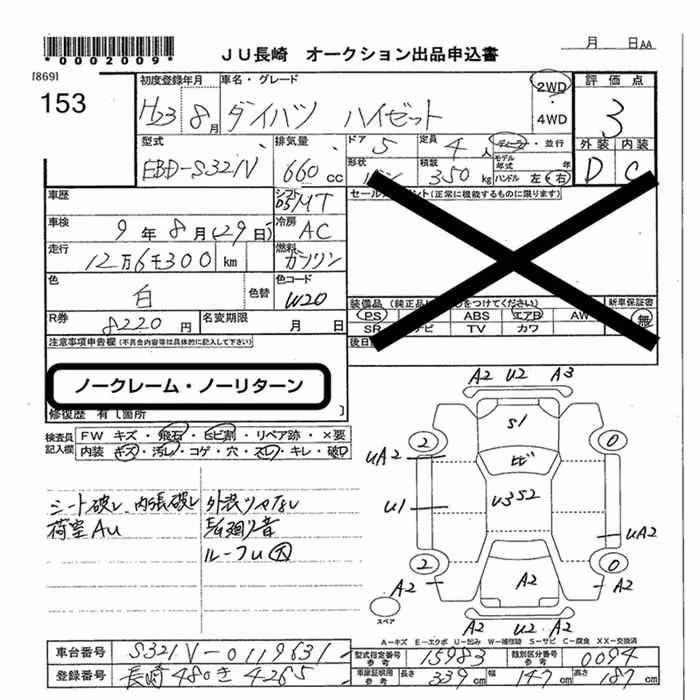 *0002009*
JU長崎 オークション出品申込書
月 日AA
[869]
153
初度登録年月 車名・グレード
H23 8月 ダイハツ ハイゼット
2WD
・
4WD
評価点
3
外装 内装
D C
型式 排気量 ドア 定員
EBD-S321V 660cc 5 4人
ディーラー・並行
形状 積載 モデル年式 年
バン 350kg ハンドル 左・右
車歴 シフト
D5MT
セールスポイント(正常に機能するものに限ります)
車検 冷房
9年8月(29日) AC
走行 燃料
12万6千300km ガソリン
色 色替 色コード
白 W20
装備品(純正品に○をつけてください) 新車保証書
PS ABS エアB AW 無
SR ナビ TV カワ
R券 名変期限
8220円 月 日
後日
注意事項申告欄(不具合内容等は具体的に記入して下さい)
ノークレーム・ノーリターン
修復歴 有〔箇所 〕
検査員記入欄
FW キズ・飛石・ヒビ割・リペア跡・×要
内装 キズ・汚レ・コゲ・穴・スレ・キレ・破レ
シート破レ、内張破レ
荷室AU
ルーフU大
A2 U2 A3
S1
2 0
UA2
ヒビ
U1 U3S2
UA2
2 0
A2 A2 A2
スペア
A2 U2 A2
A-キズ E-エクボ U-凹み W-補修跡 S-サビ C-腐食 XX-交換済
車台番号 S321V-0119631
型式指定番号 参考 15983 類別区分番号 参考 0094
登録番号 長崎480き4265
車庫証明用 参考 長さ 339cm 幅 147cm 高さ 187cm